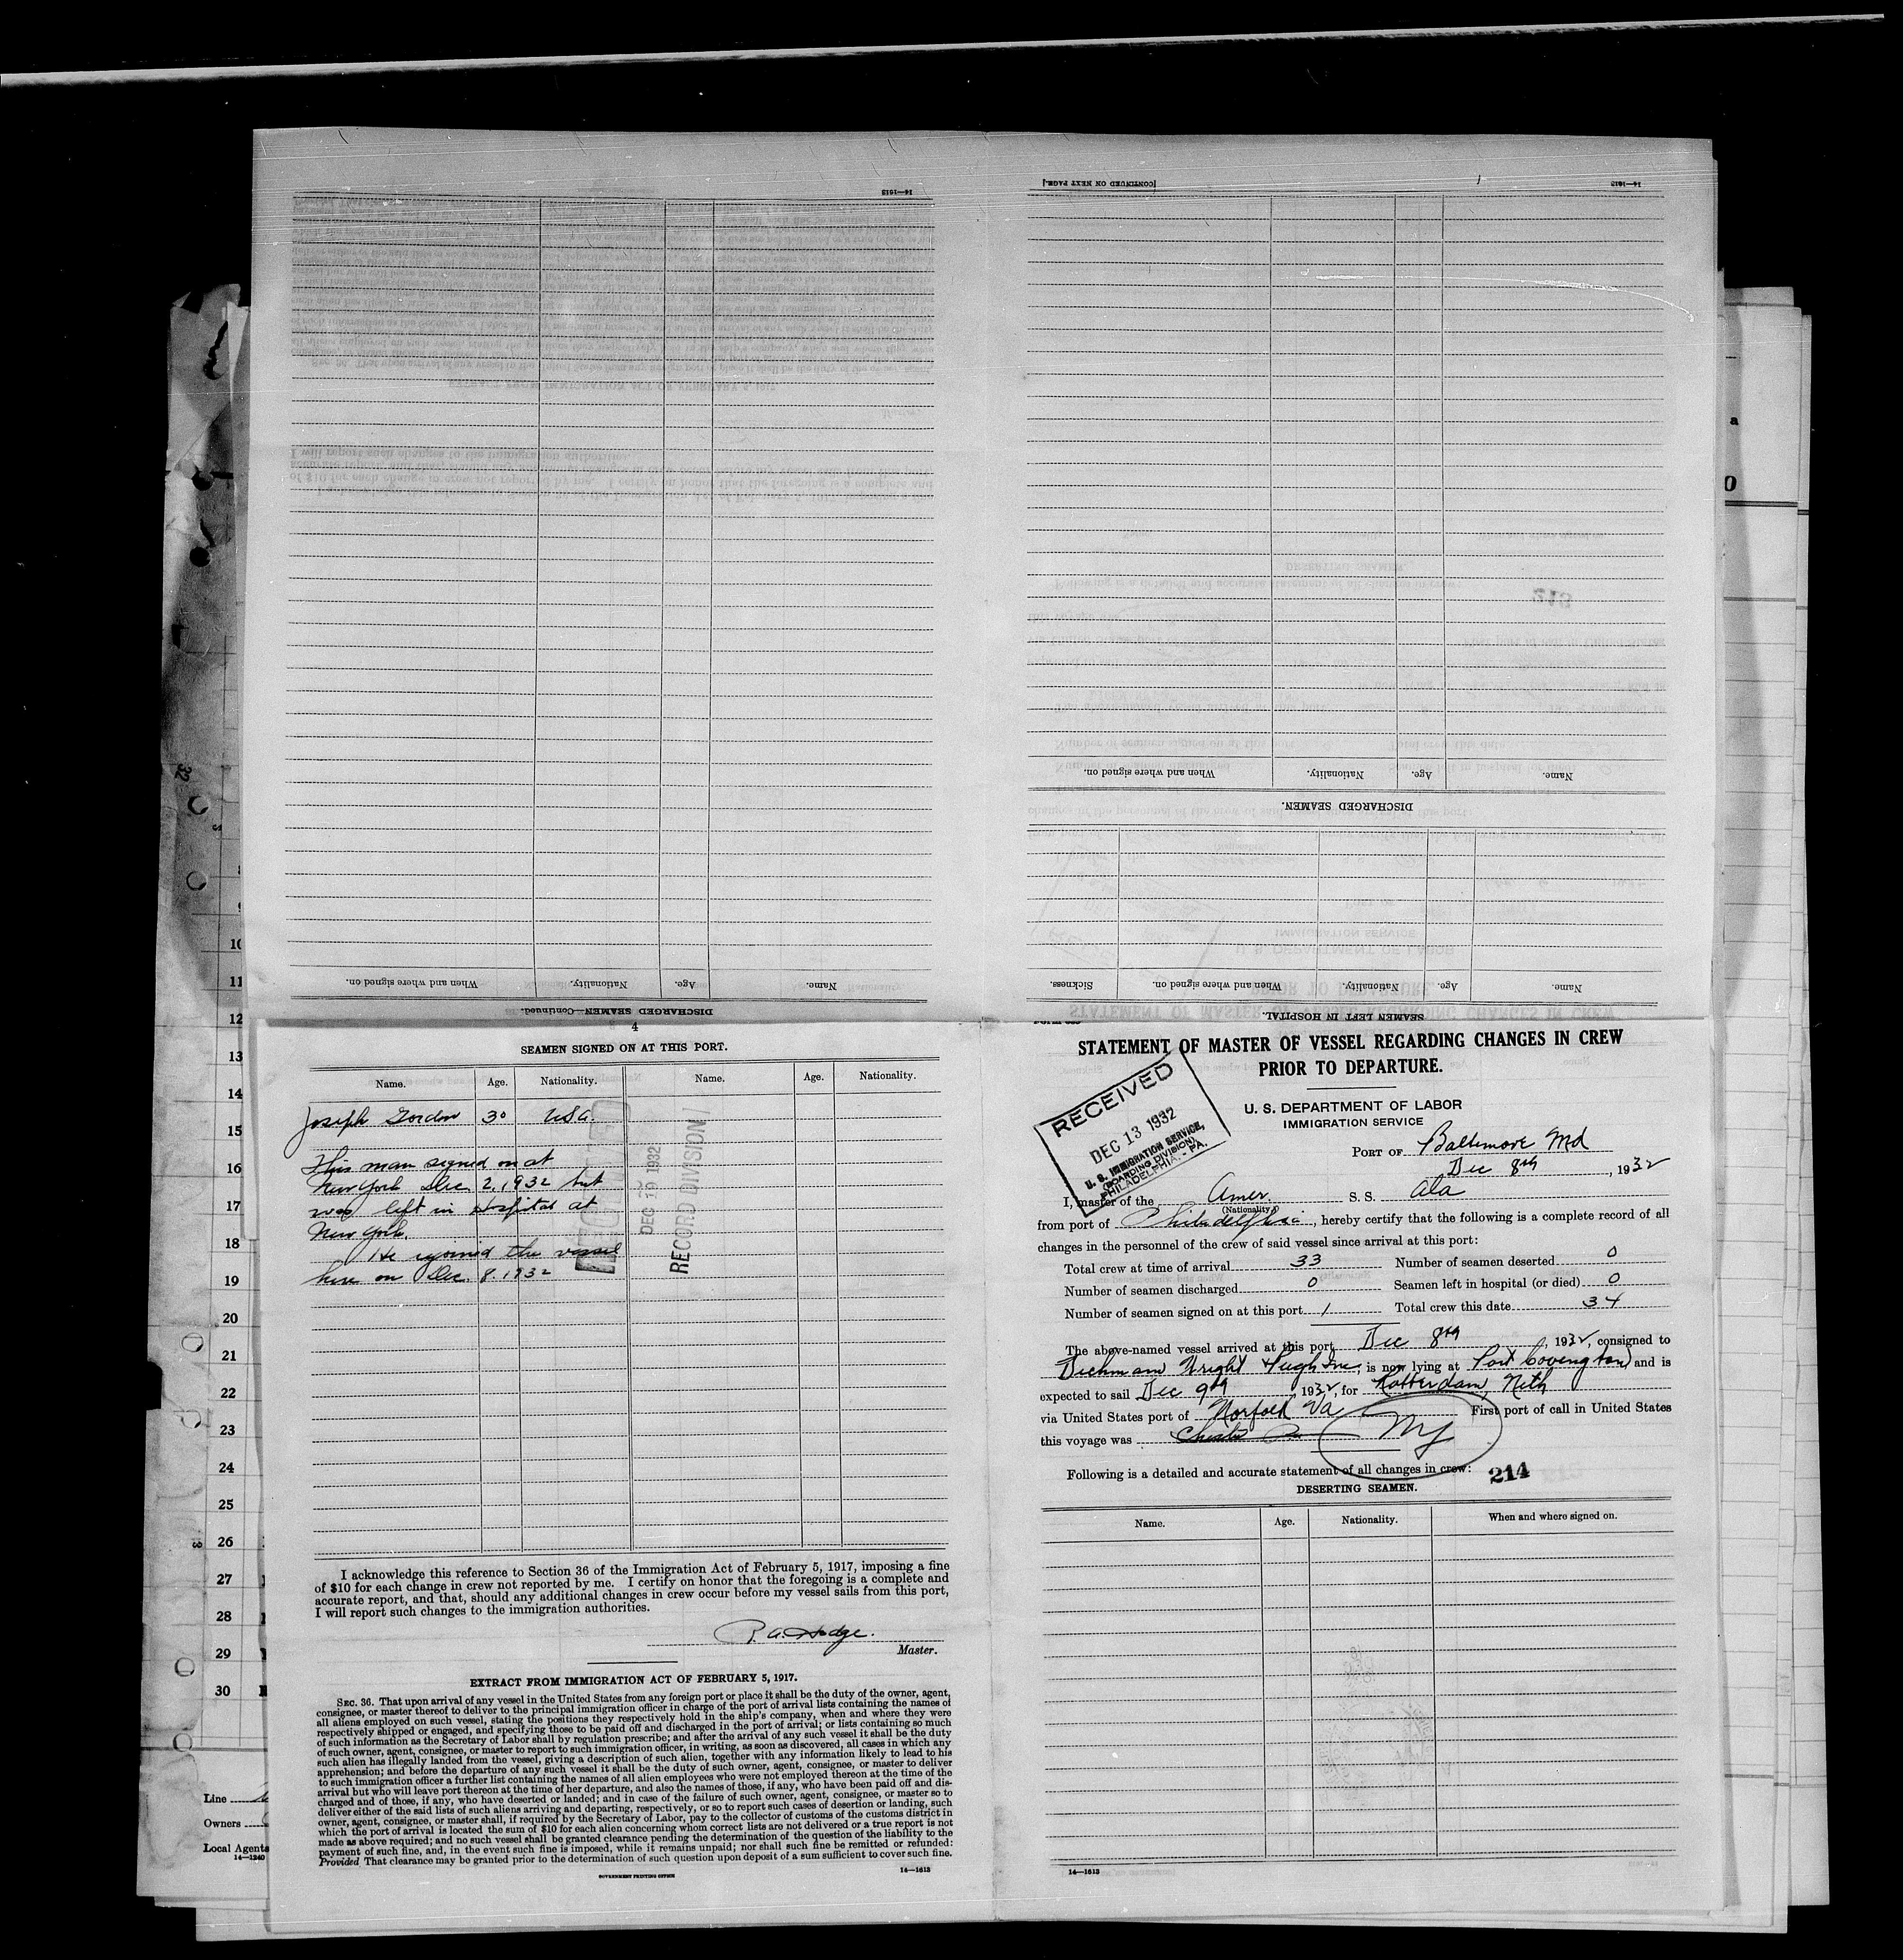 14—1613
[CONTINUED ON NEXT PAGE.]
14—1613
When and where signed on.
Nationality.
Age.
Name.
DISCHARGED SEAMEN.
When and where signed on.
Nationality.
Age.
Name.
DISCHARGED SEAMEN—Continued.
Sickness.
When and where signed on.
Nationality.
Age.
Name.
SEAMEN LEFT IN HOSPITAL.
4
SEAMEN SIGNED ON AT THIS PORT.
Name. Age. Nationality. Name. Age. Nationality.
Joseph Gordon 30 USA.
This man signed on at
New York Dec. 2, 1932 but
was left in Hospital at
New York.
He rejoined the vessel
here on Dec. 8. 1932
DEC 1932
RECORD DIVISION
I acknowledge this reference to Section 36 of the Immigration Act of February 5, 1917, imposing a fine
of $10 for each change in crew not reported by me. I certify on honor that the foregoing is a complete and
accurate report, and that, should any additional changes in crew occur before my vessel sails from this port,
I will report such changes to the immigration authorities.
Hodge.
Master.
EXTRACT FROM IMMIGRATION ACT OF FEBRUARY 5, 1917.
SEC. 36. That upon arrival of any vessel in the United States from any foreign port or place it shall be the duty of the owner, agent,
consignee, or master thereof to deliver to the principal immigration officer in charge of the port of arrival lists containing the names of
all aliens employed on such vessel, stating the positions they respectively hold in the ship's company, when and where they were
respectively shipped or engaged, and specifying those to be paid off and discharged in the port of arrival; or lists containing so much
of such information as the Secretary of Labor shall by regulation prescribe; and after the arrival of any such vessel it shall be the duty
of such owner, agent, consignee, or master to report to such immigration officer, in writing, as soon as discovered, all cases in which any
such alien has illegally landed from the vessel, giving a description of such alien, together with any information likely to lead to his
apprehension; and before the departure of any such vessel it shall be the duty of such owner, agent, consignee, or master to deliver
to such immigration officer a further list containing the names of all alien employees who were not employed thereon at the time of the
arrival but who will leave port thereon at the time of her departure, and also the names of those, if any, who have been paid off and dis-
charged and of those, if any, who have deserted or landed; and in case of the failure of such owner, agent, consignee, or master so to
deliver either of the said lists of such aliens arriving and departing, respectively, or so to report such cases of desertion or landing, such
owner, agent, consignee, or master shall, if required by the Secretary of Labor, pay to the collector of customs of the customs district in
which the port of arrival is located the sum of $10 for each alien concerning whom correct lists are not delivered or a true report is not
made as above required; and no such vessel shall be granted clearance pending the determination of the question of the liability to the
payment of such fine, and, in the event such fine is imposed, while it remains unpaid; nor shall such fine be remitted or refunded:
Provided That clearance may be granted prior to the determination of such question upon deposit of a sum sufficient to cover such fine.
GOVERNMENT PRINTING OFFICE
14—1613
STATEMENT OF MASTER OF VESSEL REGARDING CHANGES IN CREW
PRIOR TO DEPARTURE.
U. S. DEPARTMENT OF LABOR
IMMIGRATION SERVICE
RECEIVED
DEC 13 1932
U. S. IMMIGRATION SERVICE,
(BOARDING DIVISION)
PHILADELPHIA. - PA.
PORT OF Baltimore Md
Dec 8th, 1932
I, master of the Amer. S. S. Ala
(Nationality.)
from port of Philadelphia, hereby certify that the following is a complete record of all
changes in the personnel of the crew of said vessel since arrival at this port:
Total crew at time of arrival 33 Number of seamen deserted 0
Number of seamen discharged 0 Seamen left in hospital (or died) 0
Number of seamen signed on at this port 1 Total crew this date 34
The above-named vessel arrived at this port Dec 8th, 1932, consigned to
Dichmann Wright & Pugh Inc, is now lying at Port Covington and is
expected to sail Dec 9th, 1932, for Rotterdam, Neth
via United States port of Norfolk Va First port of call in United States
this voyage was Chester Pa NY
Following is a detailed and accurate statement of all changes in crew: 214
DESERTING SEAMEN.
Name. Age. Nationality. When and where signed on.
14—1613
10
11
12
13
14
15
16
17
18
19
20
21
22
23
24
25
26
27
28
29
30
Line
Owners
Local Agents
14—1240